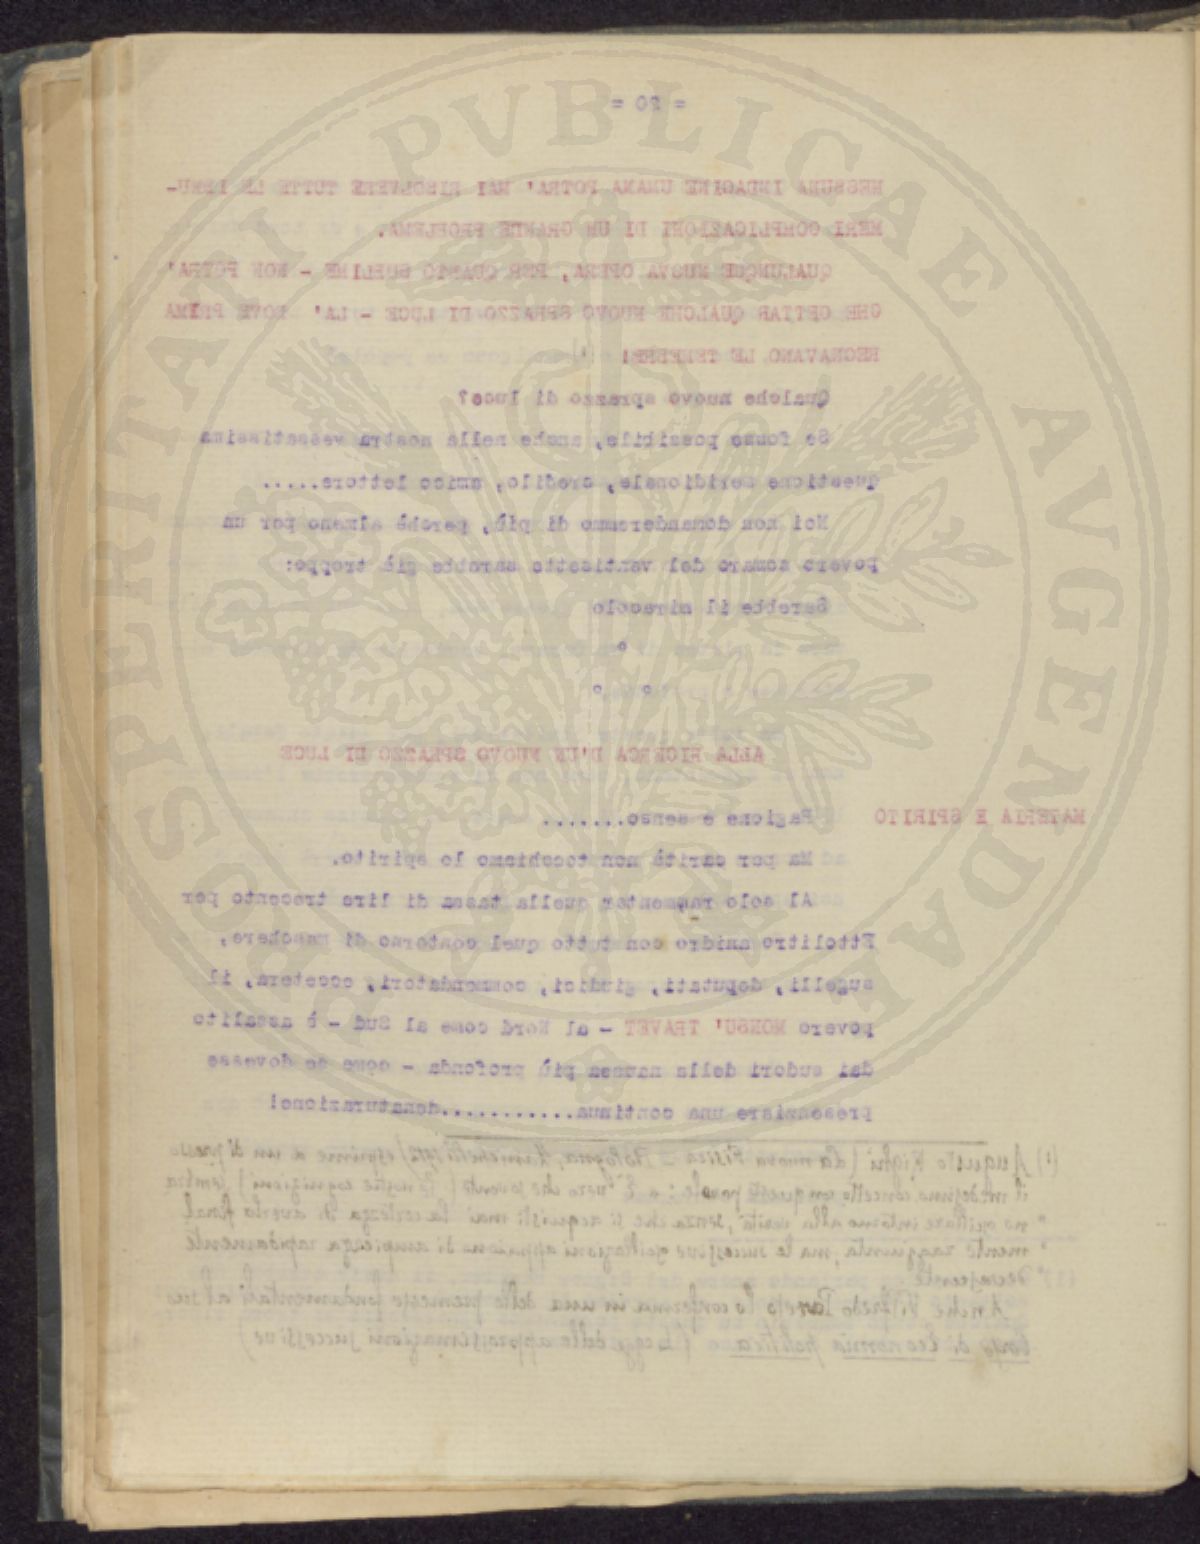 = 20 =
NESSUNA INDAGINE UMANA POTRA' MAI RISOLVERE TUTTE LE INNU-
MERI COMPLICAZIONI DI UN GRANDE PROBLEMA.
QUALUNQUE NUOVA OPERA, PER QUANTO SUBLIME - NON POTRA'
CHE GETTAR QUALCHE NUOVO SPRAZZO DI LUCE - LA' DOVE PRIMA
REGNAVANO LE TENEBRE!
Qualche nuovo sprazzo di luce?
Se fosse possibile, anche nella nostra vessatissima
questione meridionale, credilo, amico lettore.....
Noi non domanderemmo di più, perchè almeno per un
povero somaro del ventisette sarebbe già troppo:
Sarebbe il miracolo
°
° °
ALLA RICERCA D'UN NUOVO SPRAZZO DI LUCE
MATERIA E SPIRITO
Ragione e senso.......
Ma per carità non tocchiamo lo spirito.
Al solo rammentar quella tassa di lire trecento per
Ettolitro anidro con tutto quel contorno di maschere,
sugelli, deputati, giudici, commendatori, eccetera, il
povero MONSU' TRAVET - al Nord come al Sud - è assalito
dai sudori della nausea più profonda - come se dovesse
presenziare una continua............denaturazione!
(1) Augusto Righi (La nuova Fisica - Bologna, Zanichelli 1912) esprime a un di presso
il medesimo concetto con queste parole: « È vero che sovente (le nostre cognizioni) sembra
no oscillare intorno alla verità, senza che si acquisti mai la certezza di averla final
mente raggiunta, ma le successive oscillazioni appaiono di ampiezza rapidamente
decrescente
Anche Vilfredo Pareto lo conferma in una delle premesse fondamentali al suo
Corso di Economia politica (Legge delle approssimazioni successive)
PROSPERITATI PVBLICAE AVGENDAE